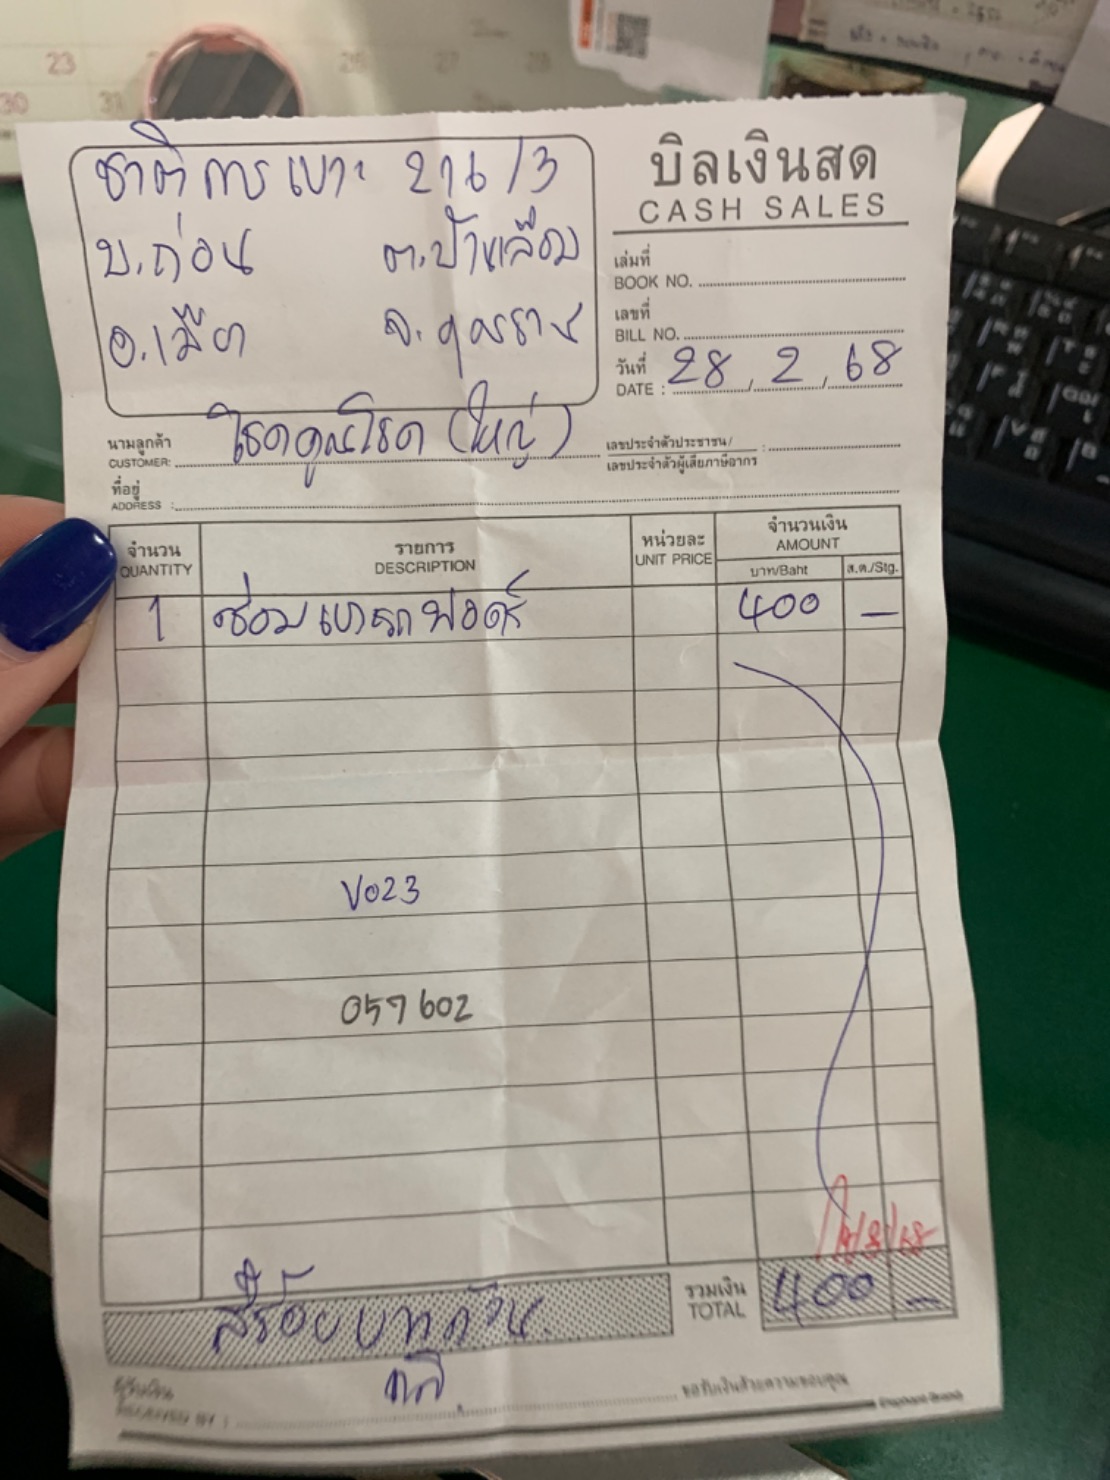 23
26
27
28
30
31
ชาติการเบาะ 216/3
บ.ถ่อน ต.บ้านเลื่อม
อ.เมือง จ.อุดรธานี
บิลเงินสด
CASH SALES
เล่มที่
BOOK NO.
เลขที่
BILL NO.
วันที่
DATE : 28, 2, 68
นามลูกค้า
CUSTOMER: โชคคูณโชค (ใหญ่)
เลขประจำตัวประชาชน/
เลขประจำตัวผู้เสียภาษีอากร :
ที่อยู่
ADDRESS :
จำนวน
QUANTITY
รายการ
DESCRIPTION
หน่วยละ
UNIT PRICE
จำนวนเงิน
AMOUNT
บาท/Baht
ส.ต./Stg.
1 ซ่อมเบาะรถฟอร์ด 400 —
V023
057602
รวมเงิน
TOTAL
400 —
สี่ร้อยบาทถ้วน.
ผู้รับเงิน
RECEIVED BY :
ขอรับเงินด้วยความขอบคุณ
Elephant Brand